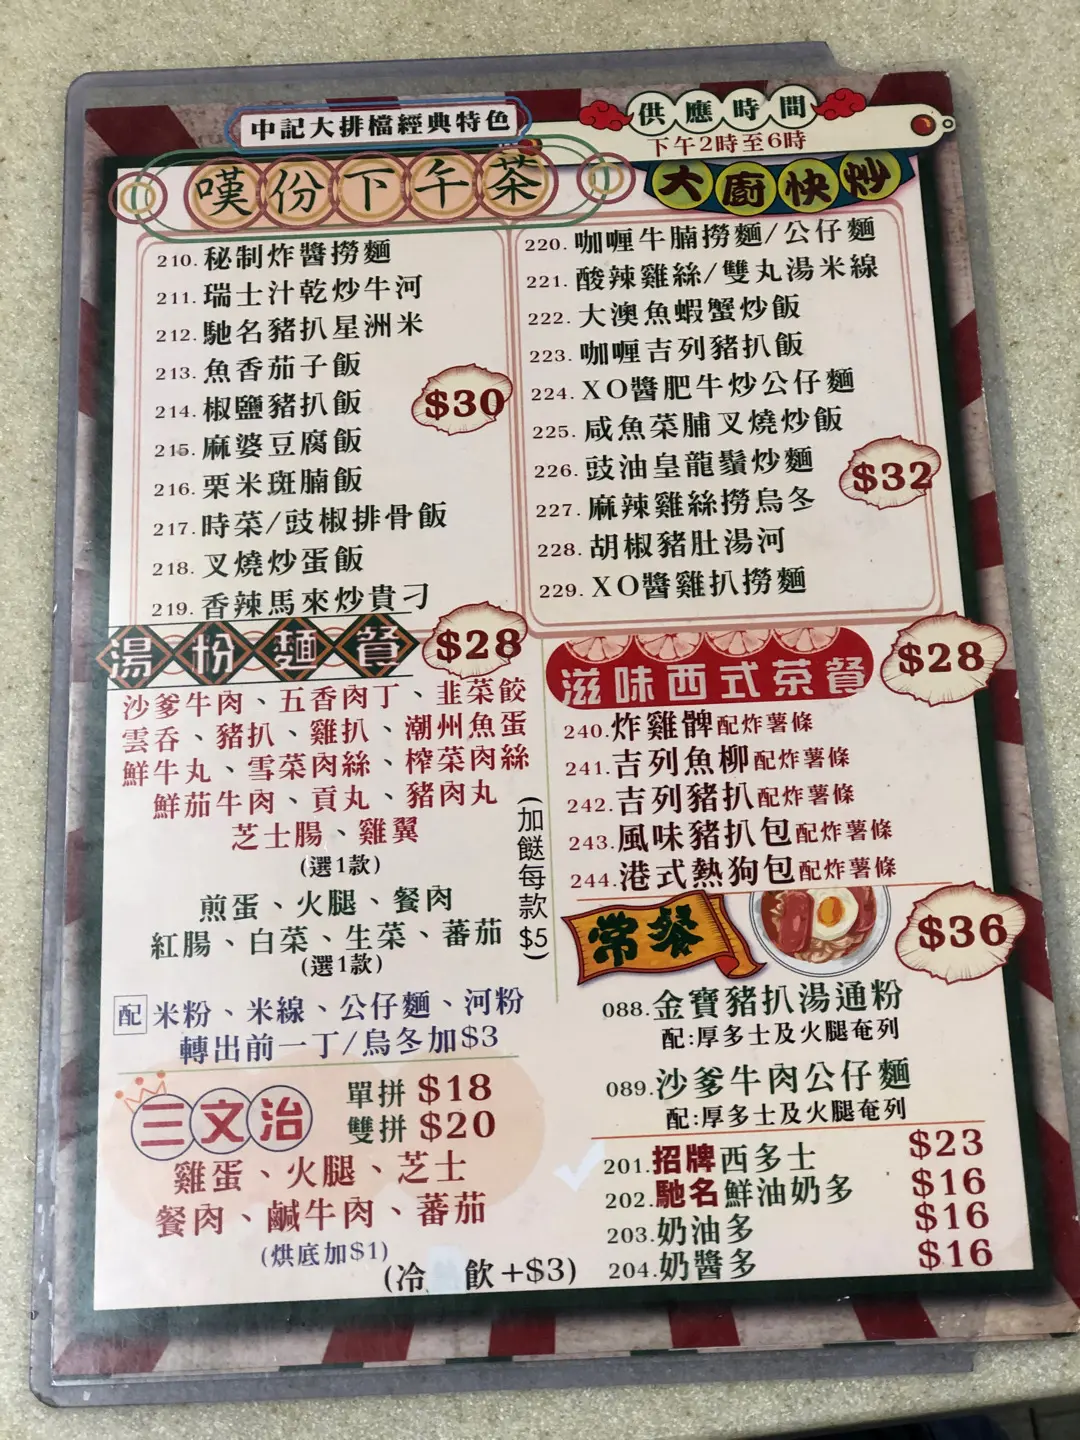 中記大排檔經典特色
供應時間
下午2時至6時
嘆份下午茶
210.秘制炸醬撈麵
211.瑞士汁乾炒牛河
212.馳名豬扒星洲米
213.魚香茄子飯
214.椒鹽豬扒飯
215.麻婆豆腐飯
216.粟米斑腩飯
217.時菜/豉椒排骨飯
218.叉燒炒蛋飯
219.香辣馬來炒貴刁
$30
大廚快炒
220.咖喱牛腩撈麵/公仔麵
221.酸辣雞絲/雙丸湯米線
222.大澳魚蝦蟹炒飯
223.咖喱吉列豬扒飯
224.XO醬肥牛炒公仔麵
225.咸魚菜脯叉燒炒飯
226.豉油皇龍鬚炒麵
227.麻辣雞絲撈烏冬
228.胡椒豬肚湯河
229.XO醬雞扒撈麵
$32
湯粉麵餐
$28
沙爹牛肉、五香肉丁、韭菜餃
雲吞、豬扒、雞扒、潮州魚蛋
鮮牛丸、雪菜肉絲、榨菜肉絲
鮮茄牛肉、貢丸、豬肉丸
芝士腸、雞翼
(選1款)
煎蛋、火腿、餐肉
紅腸、白菜、生菜、蕃茄
(選1款)
(加餸每款$5)
配 米粉、米線、公仔麵、河粉
轉出前一丁/烏冬加$3
三文治
單拼 $18
雙拼 $20
雞蛋、火腿、芝士
餐肉、鹹牛肉、蕃茄
(烘底加$1)
(冷 飲+$3)
滋味西式茶餐
$28
240.炸雞髀配炸薯條
241.吉列魚柳配炸薯條
242.吉列豬扒配炸薯條
243.風味豬扒包配炸薯條
244.港式熱狗包配炸薯條
常餐
$36
088.金寶豬扒湯通粉
配:厚多士及火腿奄列
089.沙爹牛肉公仔麵
配:厚多士及火腿奄列
201.招牌西多士 $23
202.馳名鮮油奶多 $16
203.奶油多 $16
204.奶醬多 $16